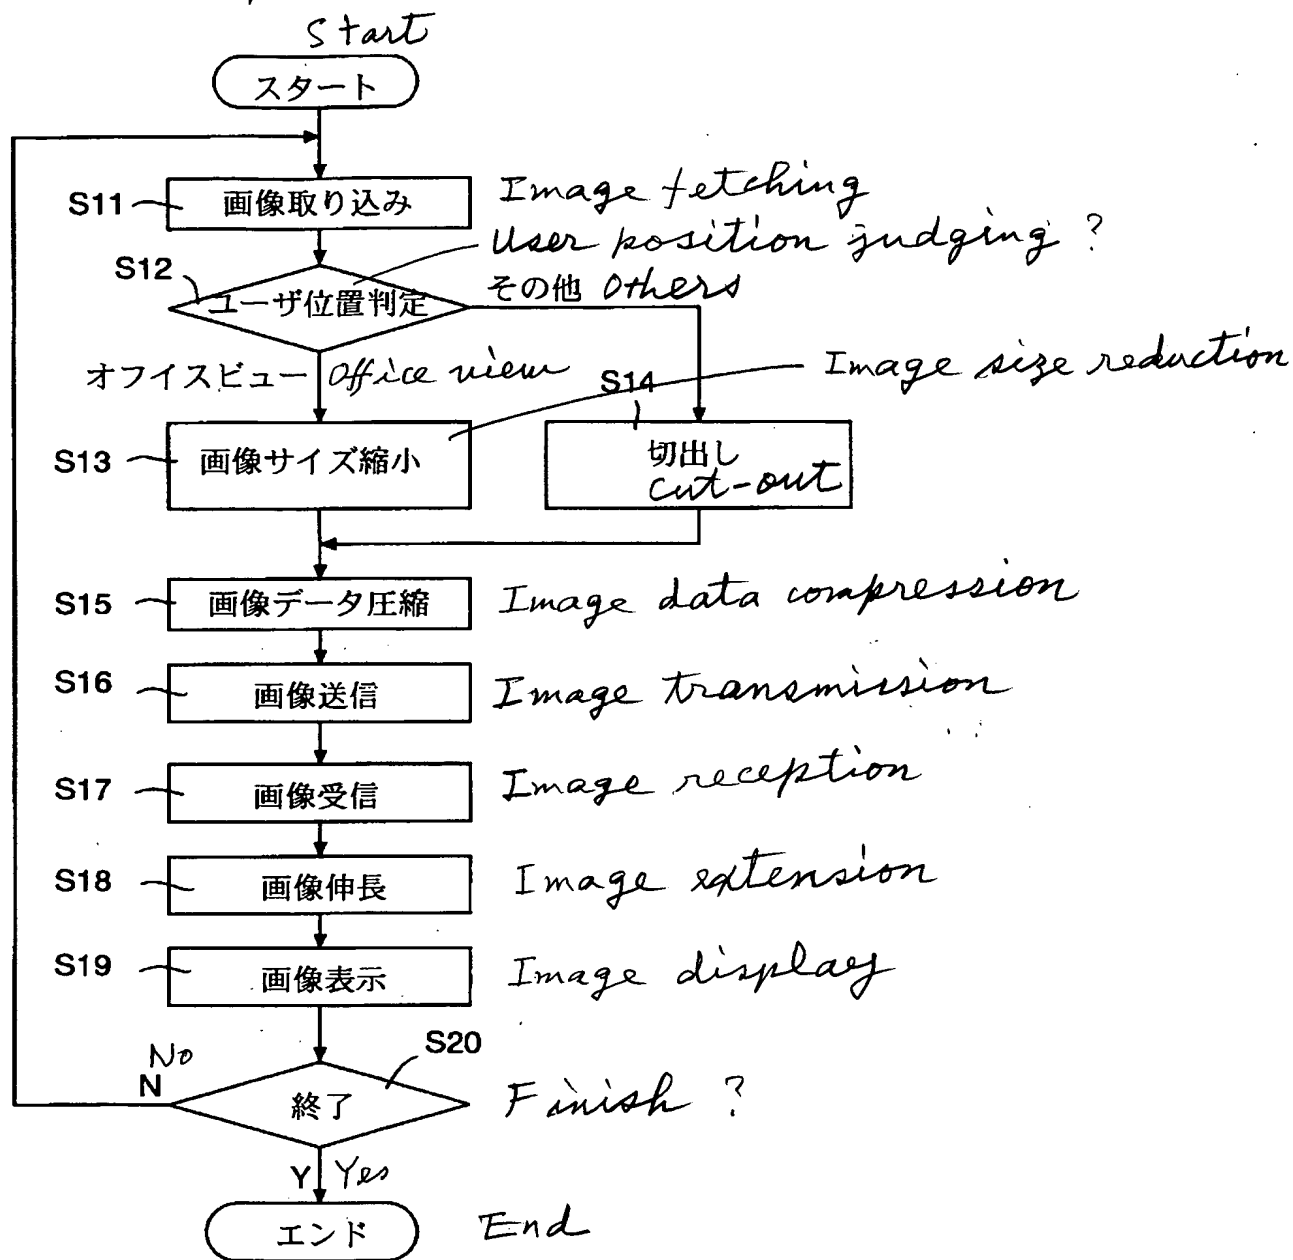 Start
スタート
S11 画像取り込み Image fetching
User position judging ?
S12 ユーザ位置判定 その他 Others
オフイスビュー Office view
Image size reduction
S13 画像サイズ縮小
S14 切出し
Cut-out
S15 画像データ圧縮 Image data compression
S16 画像送信 Image transmission
S17 画像受信 Image reception
S18 画像伸長 Image extension
S19 画像表示 Image display
No
N
S20
終了 Finish ?
Y Yes
エンド End